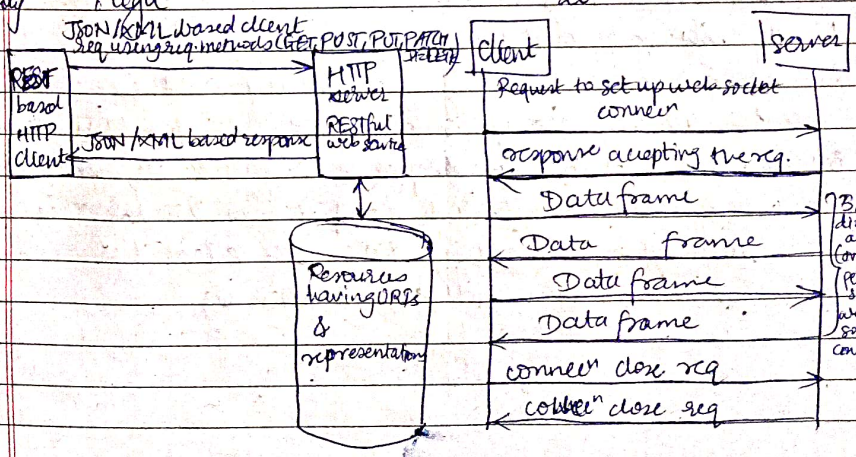 JSON/XML based client
req using req. methods (GET, POST, PUT, PATCH)
DELETE
REST
based
HTTP
client
HTTP
server
RESTful
web service
JSON/XML based response
Resources
having URIs
&
representation
client
server
Request to set up web socket
connecn
response accepting the req.
Data frame
Data frame
Data frame
Data frame
connecn close req
connecn close req